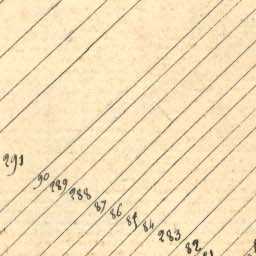 291
90
289
288
87
86
85
84
283
82